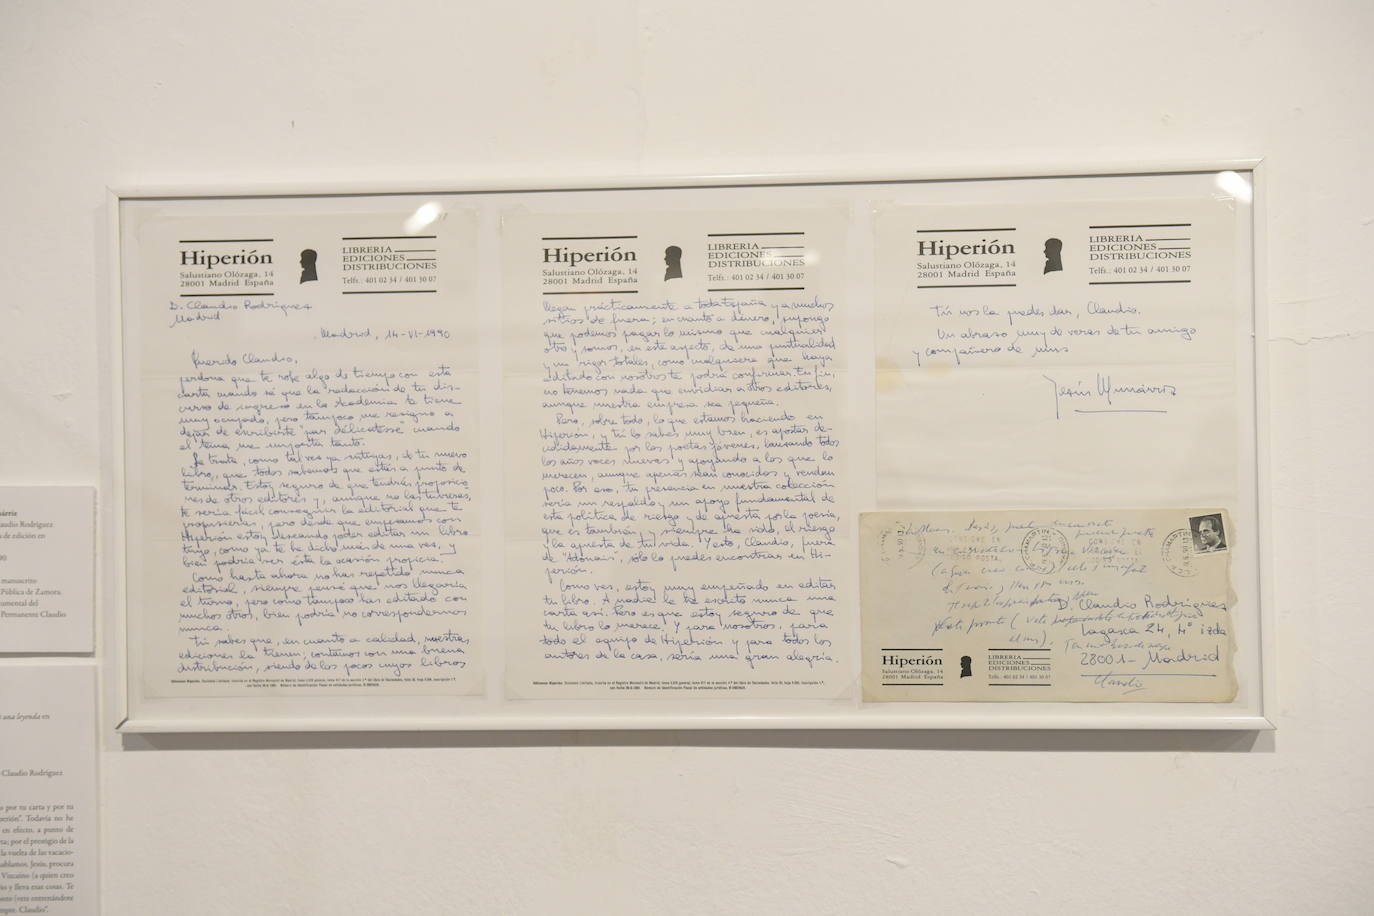 Hiperión
Salustiano Olózaga, 14
28001 Madrid España
LIBRERIA
EDICIONES
DISTRIBUCIONES
Telfs.: 401 02 34 / 401 30 07
D. Claudio Rodríguez
Madrid
Madrid, 14-VI-1990
Querido Claudio,
perdona que te robe algo de tiempo con esta
carta cuando sé que la redacción de tu dis-
curso de ingreso en la Academia te tiene
muy ocupado, pero tampoco me resigno a
dejar de escribirte "par délicatesse" cuando
el tema me importa tanto.
Se trata, como tal vez ya intuyas, de tu nuevo
libro, que todos sabemos que estás a punto de
terminar. Estoy seguro de que tendrás proposicio-
nes de otros editores y, aunque no las tuvieras,
te sería fácil conseguir la editorial que te
propusieras, pero desde que empezamos con
Hiperión estoy deseando poder editar un libro
tuyo, como ya te he dicho más de una vez, y
bien podría ser esta la ocasión propicia.
Como hasta ahora no has repetido nunca
editorial, siempre pensé que nos llegaría
el turno, pero como tampoco has editado con
muchos otros, bien podría no correspondernos
nunca.
Tú sabes que, en cuanto a calidad, nuestras
ediciones la tienen; contamos con una buena
distribución, siendo de los pocos cuyos libros
Hiperión
Salustiano Olózaga, 14
28001 Madrid España
LIBRERIA
EDICIONES
DISTRIBUCIONES
Telfs.: 401 02 34 / 401 30 07
llegan prácticamente a toda España y a muchos
sitios de fuera; en cuanto a dinero, supongo
que podemos pagar lo mismo que cualquier
otro y somos, en este aspecto, de una puntualidad
y un rigor totales, como cualquiera que haya
editado con nosotros te podrá confirmar. En fin,
no tenemos nada que envidiar a otros editores,
aunque nuestra empresa sea pequeña.
Pero, sobre todo, lo que estamos haciendo en
Hiperión, y tú lo sabes muy bien, es apostar de-
cididamente por los poetas jóvenes, lanzando todos
los años voces nuevas y apoyando a los que lo
merecen, aunque apenas sean conocidos y vendan
poco. Por eso, tu presencia en nuestra colección
sería un respaldo y un apoyo fundamental de
esta política de riesgo y de apuesta por la poesía,
que es también y siempre ha sido, el riesgo
y la apuesta de mi vida. Y esto, Claudio, fuera
de "Adonais", sólo lo puedes encontrar en Hi-
perión.
Como ves, estoy muy empeñado en editar
tu libro. A nadie le he escrito nunca una
carta así. Pero es que estoy seguro de que
tu libro lo merece. Y para nosotros, para
todo el equipo de Hiperión y para todos los
autores de la casa, sería una gran alegría.
Hiperión
Salustiano Olózaga, 14
28001 Madrid España
LIBRERIA
EDICIONES
DISTRIBUCIONES
Telfs.: 401 02 34 / 401 30 07
Tú nos la puedes dar, Claudio.
Un abrazo, muy de veras de tu amigo
y compañero de
Jesús Munárriz
D. Claudio Rodríguez
Lagasca 24, 4º izda
28001-Madrid
Claudio
Hiperión
Salustiano Olózaga, 14
28001 Madrid España
LIBRERIA
EDICIONES
DISTRIBUCIONES
Telfs.: 401 02 34 / 401 30 07
Claudio Rodríguez
de edición en
manuscrito
Pública de Zamora.
Permanente Claudio
una leyenda en
Claudio Rodríguez
por tu carta y por tu
Todavía no he
en efecto, a punto de
por el prestigio de la
la vuelta de las vacacio-
Jesús, procura
Vizcaíno (a quien creo
y lleva esas cosas. Te
(vete entrenándote
Claudio".